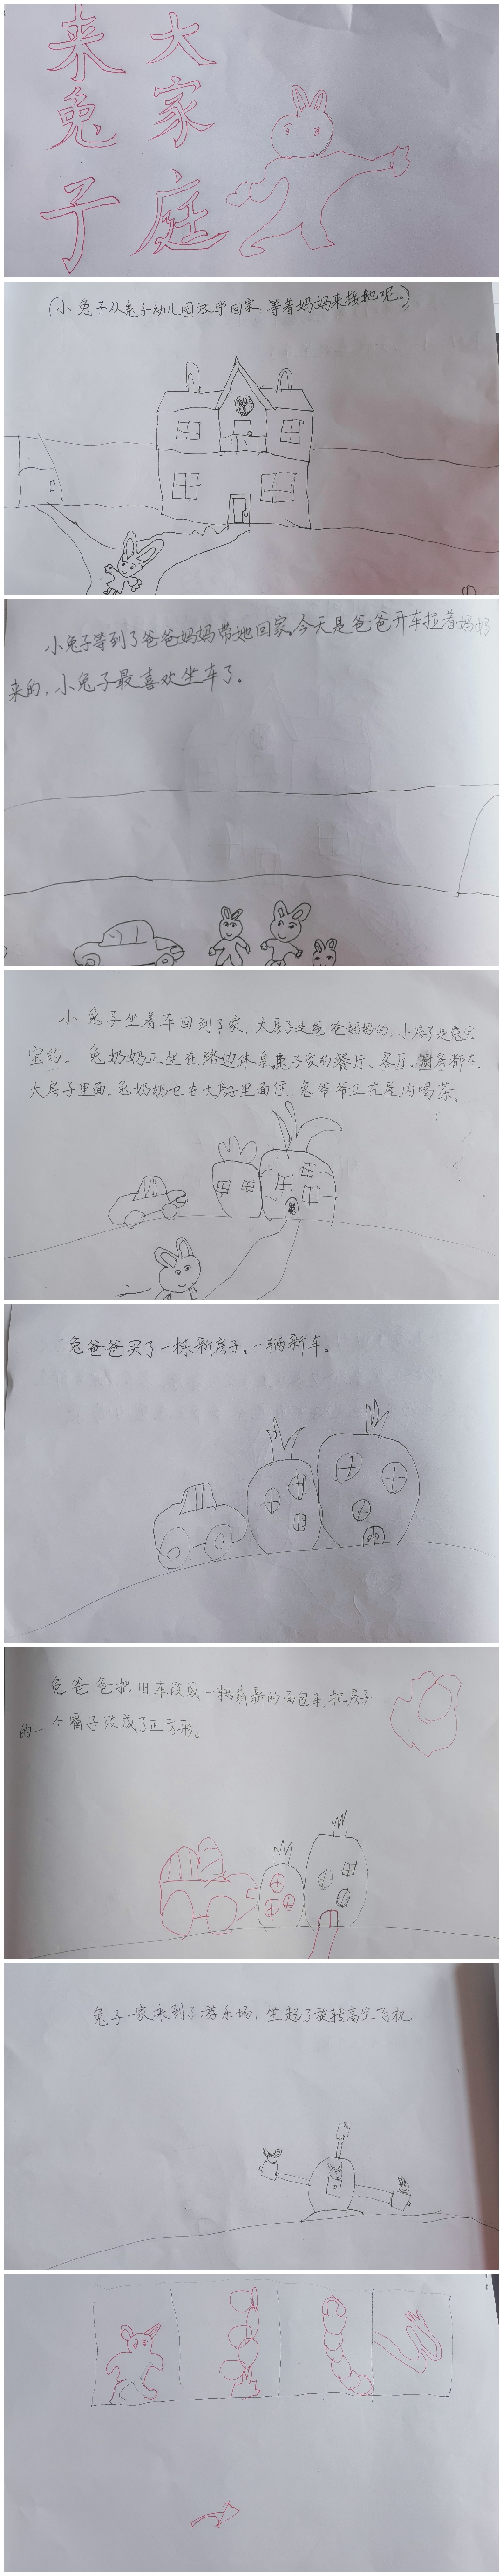 大家庭
来兔子
(小兔子从兔子幼儿园放学回家,等着妈妈来接她呢。)
小兔子等到了爸爸妈妈带她回家,今天是爸爸开车拉着妈妈
来的,小兔子最喜欢坐车了。
小兔子坐着车回到了家。大房子是爸爸妈妈的,小房子是兔宝
宝的。兔奶奶正坐在路边休息,兔子家的餐厅、客厅、厨房都在
大房子里面。兔奶奶也在大房子里面住,兔爷爷正在屋内喝茶、
兔爸爸买了一栋新房子、一辆新车。
兔爸爸把旧车改成一辆崭新的面包车,把房子
的一个窗子改成了正方形。
兔子一家来到了游乐场,坐起了旋转高空飞机